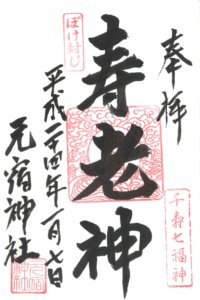 奉拝
千寿七福神
寿老神
ぼけ封じ
平成二十四年一月七日
元宿神社
元宿神社